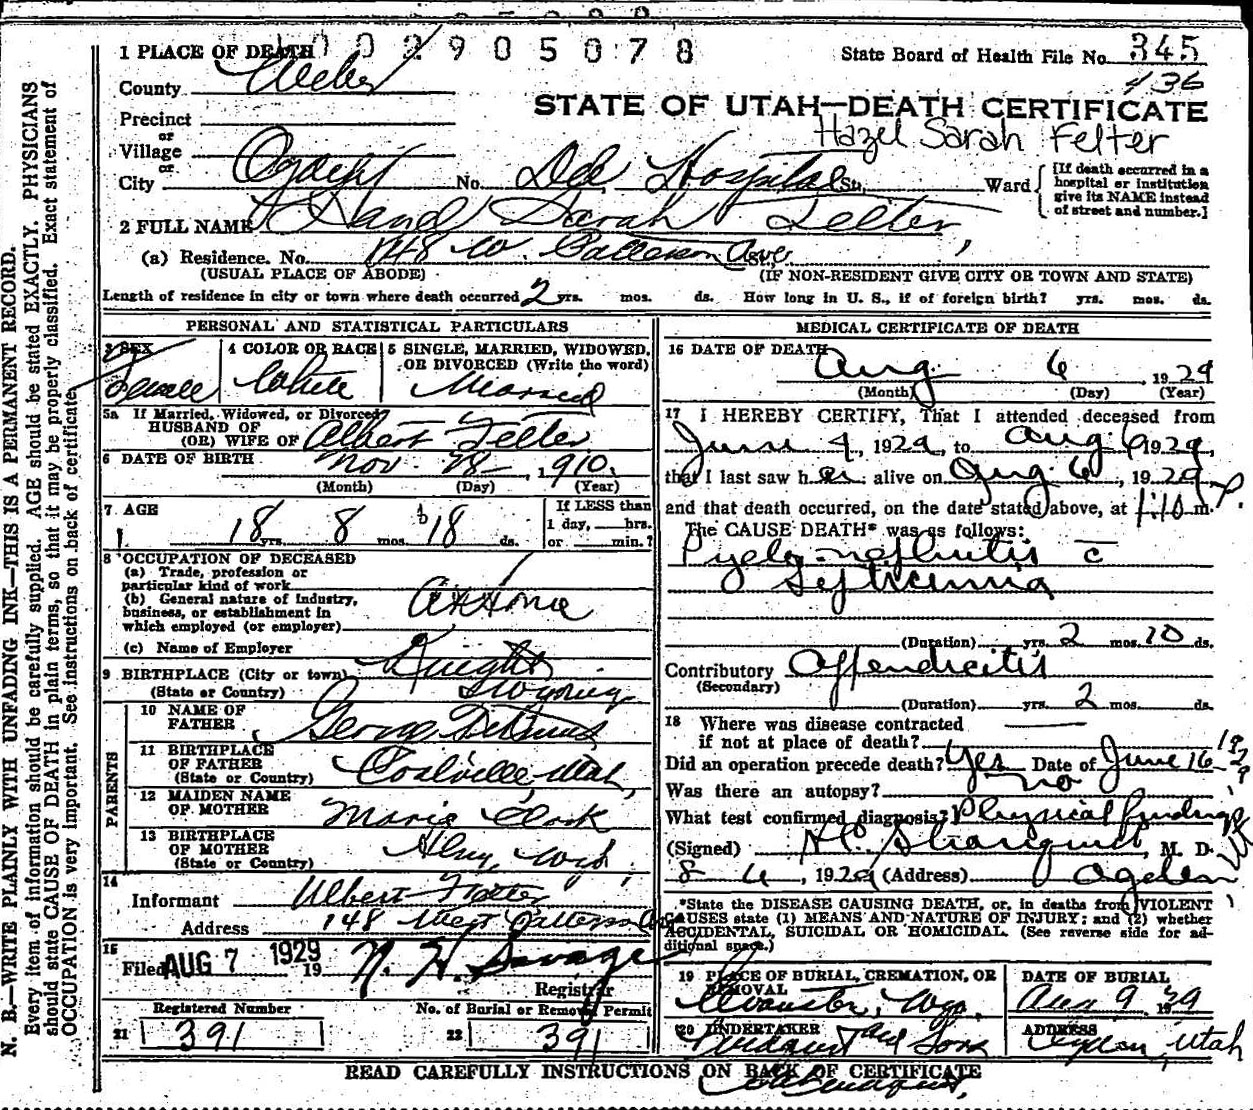 1 PLACE OF DEATH
1002905078
State Board of Health File No. 345
436
County Weber
STATE OF UTAH—DEATH CERTIFICATE
Precinct
or
Village
or
Hazel Sarah Felter
City Ogden No. Dee Hospital St., Ward
[If death occurred in a hospital or institution give its NAME instead of street and number.]
2 FULL NAME Sarah Felter,
(a) Residence. No. 148 W. Patterson Ave
(USUAL PLACE OF ABODE) (IF NON-RESIDENT GIVE CITY OR TOWN AND STATE)
Length of residence in city or town where death occurred 2 yrs. mos. ds. How long in U. S., if of foreign birth? yrs. mos. ds.
PERSONAL AND STATISTICAL PARTICULARS
3 SEX Female
4 COLOR OR RACE White
5 SINGLE, MARRIED, WIDOWED, OR DIVORCED (Write the word) Married
5a If Married, Widowed, or Divorced
HUSBAND OF
(OR) WIFE OF Albert Felter
6 DATE OF BIRTH Nov. 18, 1910.
(Month) (Day) (Year)
7 AGE 18 yrs. 8 mos. 18 ds.
If LESS than
1 day, hrs.
or min.?
8 OCCUPATION OF DECEASED
(a) Trade, profession or
particular kind of work
(b) General nature of industry,
business, or establishment in
which employed (or employer)
At Home
(c) Name of Employer
9 BIRTHPLACE (City or town) Knight
(State or Country) Wyoming
PARENTS
10 NAME OF FATHER George
11 BIRTHPLACE OF FATHER (State or Country) Coalville, Utah,
12 MAIDEN NAME OF MOTHER Marie Clark
13 BIRTHPLACE OF MOTHER (State or Country) Almy, Wyo.
14
Informant Albert Felter
Address 148 West Patterson Av
15
Filed AUG 7 1929 19 N. H. Savage
Registrar
Registered Number
21 391
No. of Burial or Removal Permit
22 391
MEDICAL CERTIFICATE OF DEATH
16 DATE OF DEATH
Aug 6, 1929
(Month) (Day) (Year)
17 I HEREBY CERTIFY, That I attended deceased from
June 4, 1929, to Aug 6, 1929,
that I last saw her alive on Aug. 6, 1929
and that death occurred, on the date stated above, at 1:10 P. m.
The CAUSE DEATH* was as follows:
Pyelo-nephritis c̄
Septicemia
(Duration) yrs. 2 mos. 10 ds.
Contributory Appendicitis
(Secondary)
(Duration) yrs. 2 mos. ds.
18 Where was disease contracted
if not at place of death?
Did an operation precede death? Yes Date of June 16 - 1929
Was there an autopsy? no
What test confirmed diagnosis? Physical findings
(Signed) M. D.
8 6, 1929 (Address) Ogden Ut
*State the DISEASE CAUSING DEATH, or, in deaths from VIOLENT
CAUSES state (1) MEANS AND NATURE OF INJURY; and (2) whether
ACCIDENTAL, SUICIDAL OR HOMICIDAL. (See reverse side for ad-
ditional space.)
19 PLACE OF BURIAL, CREMATION, OR REMOVAL
Evanston, Wyo.
DATE OF BURIAL
Aug 9 1929
20 UNDERTAKER
and Sons
ADDRESS
Ogden, Utah
READ CAREFULLY INSTRUCTIONS ON BACK OF CERTIFICATE
N. B.—WRITE PLAINLY WITH UNFADING INK—THIS IS A PERMANENT RECORD.
Every item of information should be carefully supplied. AGE should be stated EXACTLY. PHYSICIANS
should state CAUSE OF DEATH in plain terms, so that it may be properly classified. Exact statement of
OCCUPATION is very important. See instructions on back of certificate.